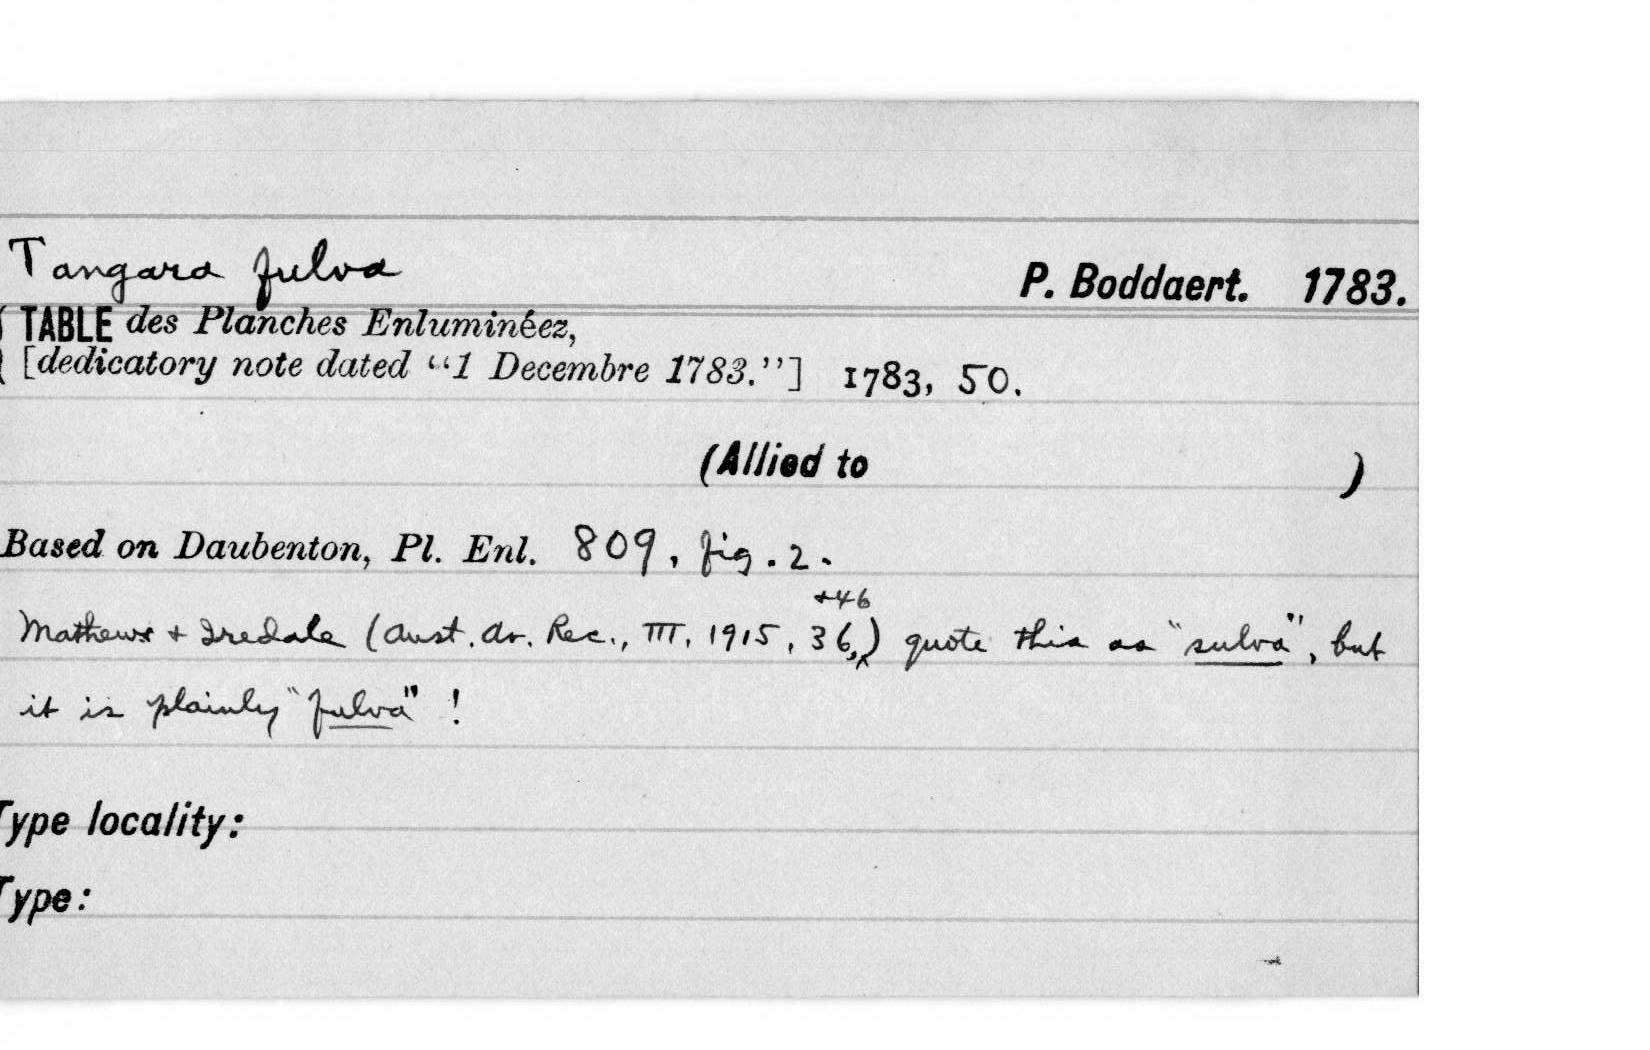 Tangara fulva
P. Boddaert. 1783.
TABLE des Planches Enluminéez,
[dedicatory note dated “1 Decembre 1783.”] 1783, 50.
(Allied to )
Based on Daubenton, Pl. Enl. 809, fig. 2.
+46
Mathews + Iredale (Aust. Av. Rec., III, 1915, 36,) quote this as "sulva", but
it is plainly "fulva" !
Type locality:
Type: